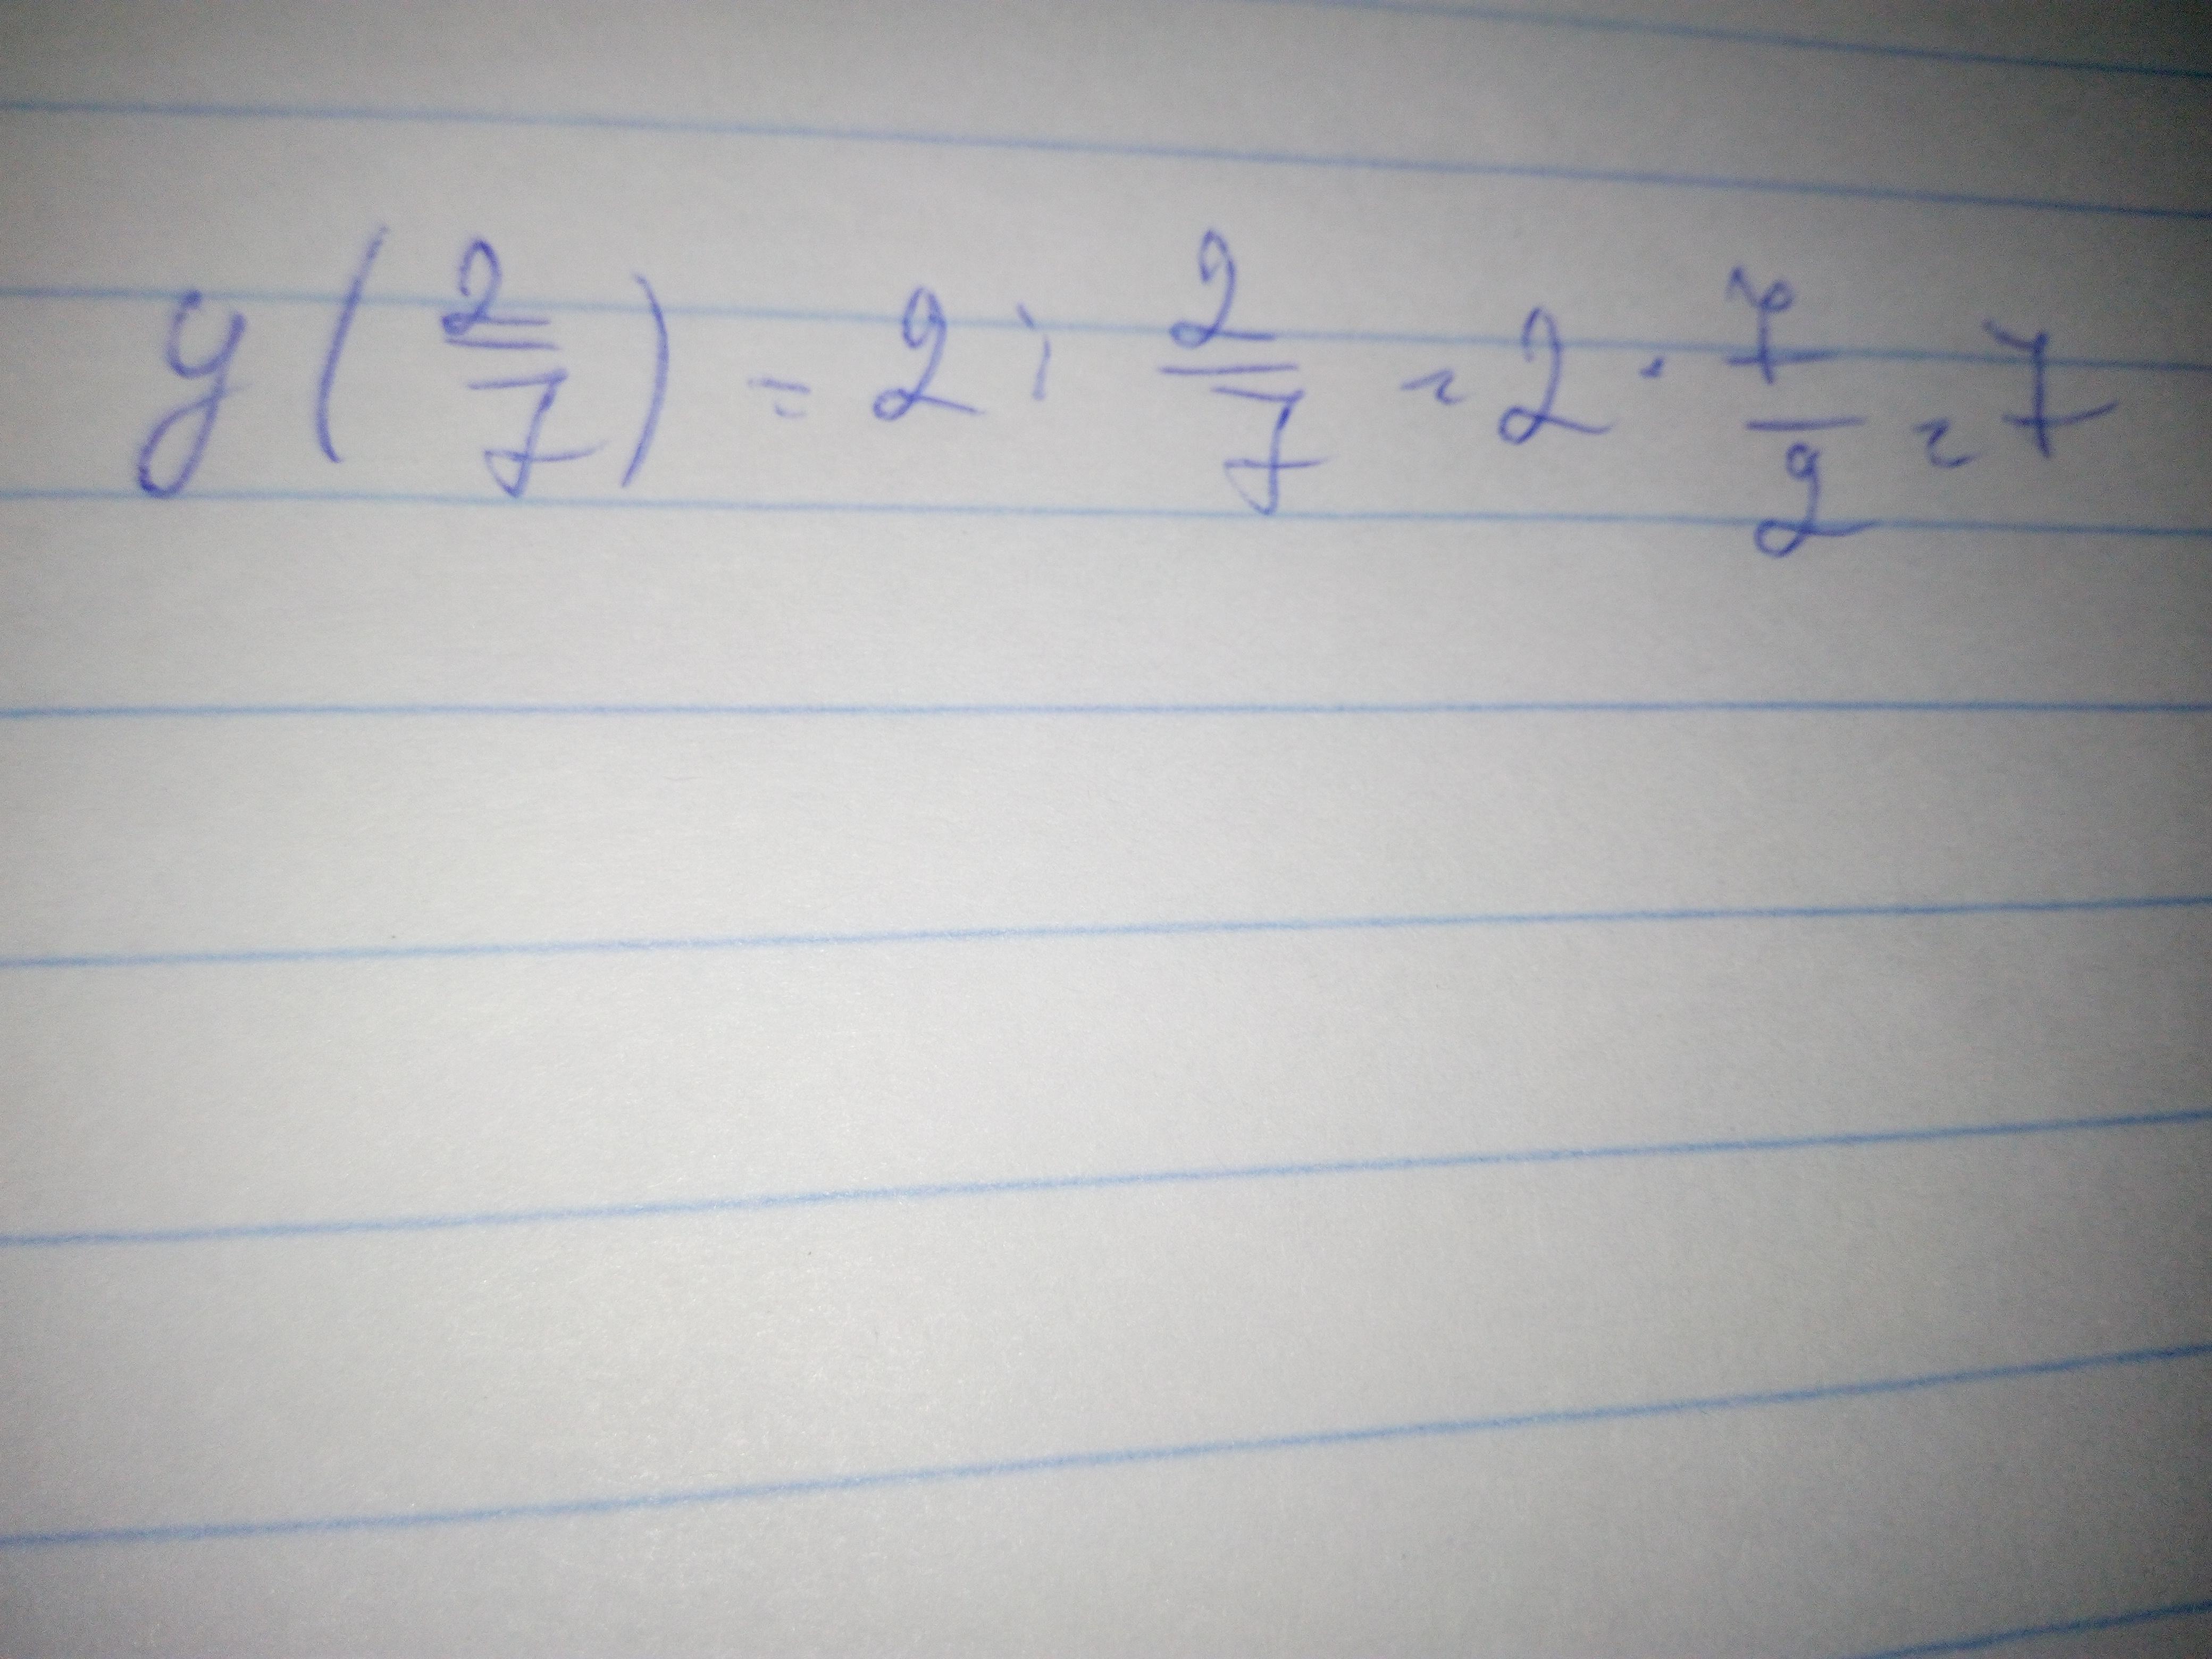 y(2/7) = 2 : 2/7 = 2 · 7/2 = 7